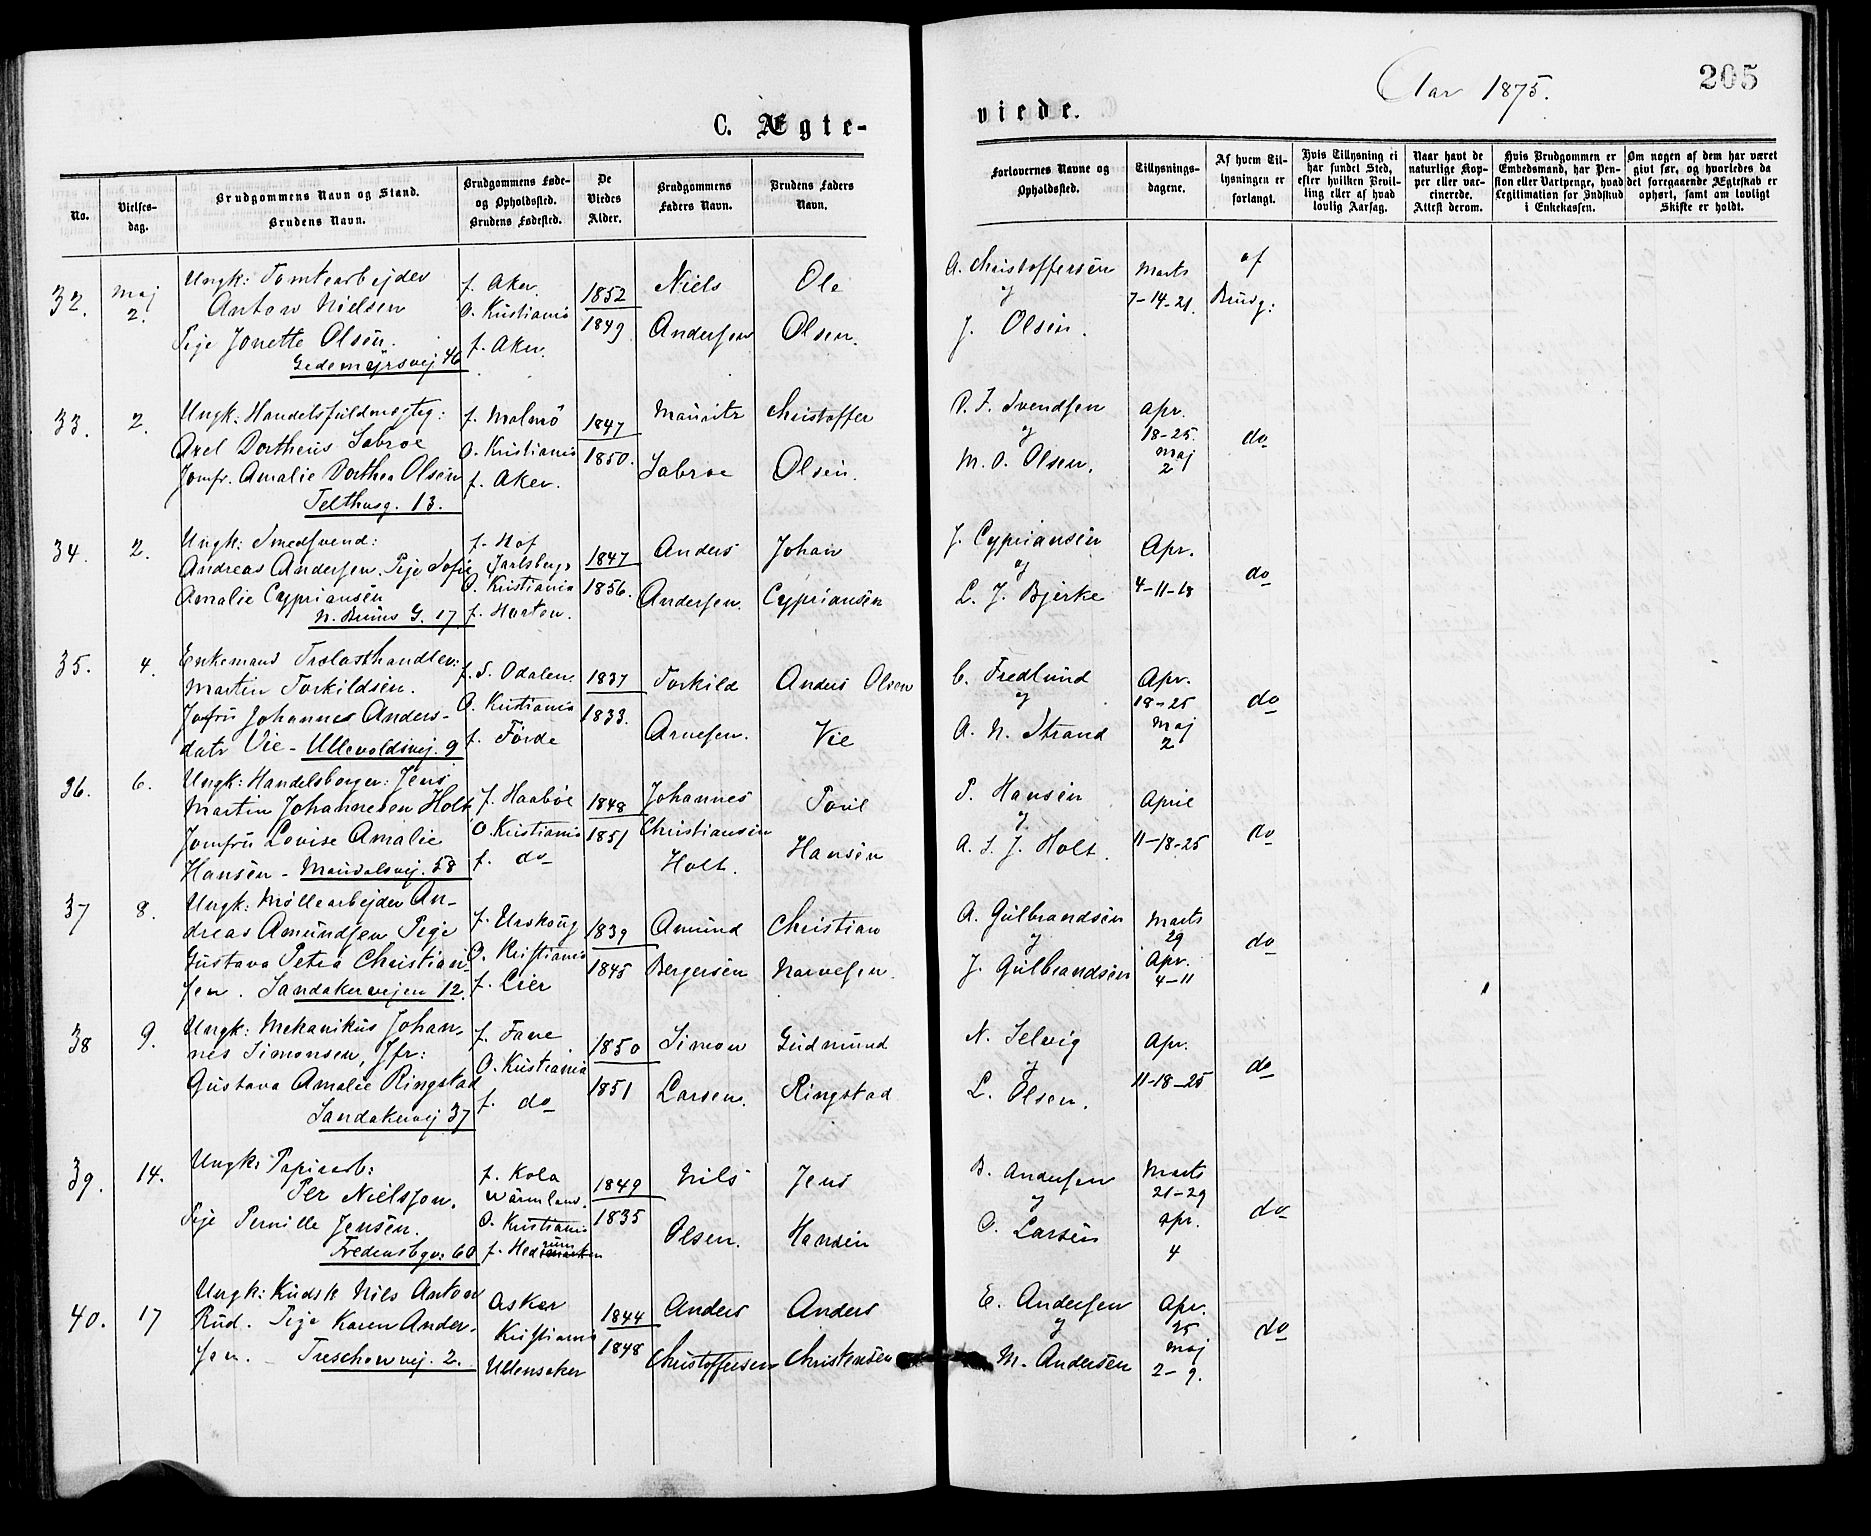 Aar 1875.
205
C. Ægte-
viede.
No.
Vielses-
dag.
Brudgommens Navn og Stand.
Brudens Navn.
Brudgommens Føde-
og Opholdssted.
Brudens Fødested.
De
Viedes
Alder.
Brudgommens
Faders Navn.
Brudens Faders
Navn.
Forlovernes Navne og
Opholdssted.
Tillysnings-
dagene.
Af hvem Til-
lysningen er
forlangt.
Hvis Tillysning ei
har fundet Sted,
efter hvilken Bevil-
ling eller af hvad
lovlig Aarsag.
Naar havt de
naturlige Kop-
per eller vac-
cinerede.
Attest derom.
Hvis Brudgommen er
Embedsmand, har Pen-
sion eller Vartpenge, hvad
Legitimation for Indskud
i Enkekassen.
Om nogen af dem har været
givt før, og hvorledes da
det foregaaende Ægteskab er
ophørt, samt om lovligt
Skifte er holdt.
32.
Maj
2.
Ungk: Tomtearbejder
Anton Nielsen
Pige Jonette Olsen.
Gedemyrsvej 46
f. Aker.
O. Kristiania
f. Aker.
1852
1849
Niels
Andersen
Ole
Olsen.
A. Christoffersen
og
J. Olsen.
Marts
7-14-21.
af
Brudg:
33.
2.
Ungk: Handelsfuldmegtig:
Axel Dortheus Sabroe
Jomfr. Amalie Dorthea Olsen
Telthusg. 13.
f. Malmö
O. Kristiania
f. Aker.
1847
1850.
Mauritz
Sabroe
Christoffer
Olsen.
O. F. Svendsen
og
M. O. Olsen.
Apr.
18-25.
Maj
2
do
34.
2.
Ungk: Smedsvend:
Andreas Andersen. Pige Sofie
Amalie Cypriansen
N. Bruns G. 17
f. Hof
Jarlsberg
O. Kristiania
f. Horten.
1847
1856.
Anders
Andersen.
Johan
Cypriansen
J. Cypriansen
og
L. J. Bjerke
Apr.
4-11-18
do
35.
4.
Enkemand Trælasthandler:
Martin Torkildsen.
Jofru Johannes Anders-
datr Vie - Ullevoldsvej. 9
f. S. Odalen.
O. Kristiania
f. Förde
1837
1833.
Torkild
Arnesen.
Anders Olsen
Vie
C. Fredlund
og
A. N. Strand
Apr.
18-25
Maj
2
do
36.
6.
Ungk: Handelsborger: Jens
Martin Johannesen Holt
Jomfru Lovise Amalie
Hansen - Maridalsvej. 58
f. Haabøe
O. Kristiania
f. do
1848
1851
Johannes
Christiansen
Holt.
Povel
Hansen
P. Hansen
og
A. S. J. Holt.
April
11-18-25
do
37
8.
Ungk: Møllearbejder An-
dreas Amundsen Pige
Gustava Petra Christian-
sen. Sandakerveien 12.
f. Urskoug
O. Kristiania
f. Lier
1839
1845
Amund
Bergersen
Christian
Narvesen.
A. Gulbrandsen
og
J. Gulbrandsen
Marts
29
Apr.
4-11
do
38
9.
Ungk: Mekanikus Johan-
nes Simonsen, Jfr:
Gustava Amalie Ringstad
Sandakervej 37
f. Fane
O. Kristiania
f. do
1850
1851
Simon
Larsen.
Gudmund
Ringstad
N. Selvig
og
L. Olsen.
Apr.
11-18-25
do
39.
14.
Ungk: Papirarb:
Per Nielsson.
Pige Pernille Jensen.
Fredensbgv: 60
f. Kola
Wärmland.
O. Kristiania
f. Hedemarken
1849
1835
Nils
Olsen.
Jens
Hansen
B. Andersen
og
O. Larsen
Marts
21-29
Apr.
4
do
40.
17
Ungk: Kudsk Nils Anton
Rud. Pige Karen Ander-
sen. - Treschowvej. 2.
Asker
Kristiania
Ullensaker
1844
1848
Anders
Christoffersen
Anders
Christensen
E. Andersen
og
M. Andersen
Apr.
25
Maj
2-9.
do